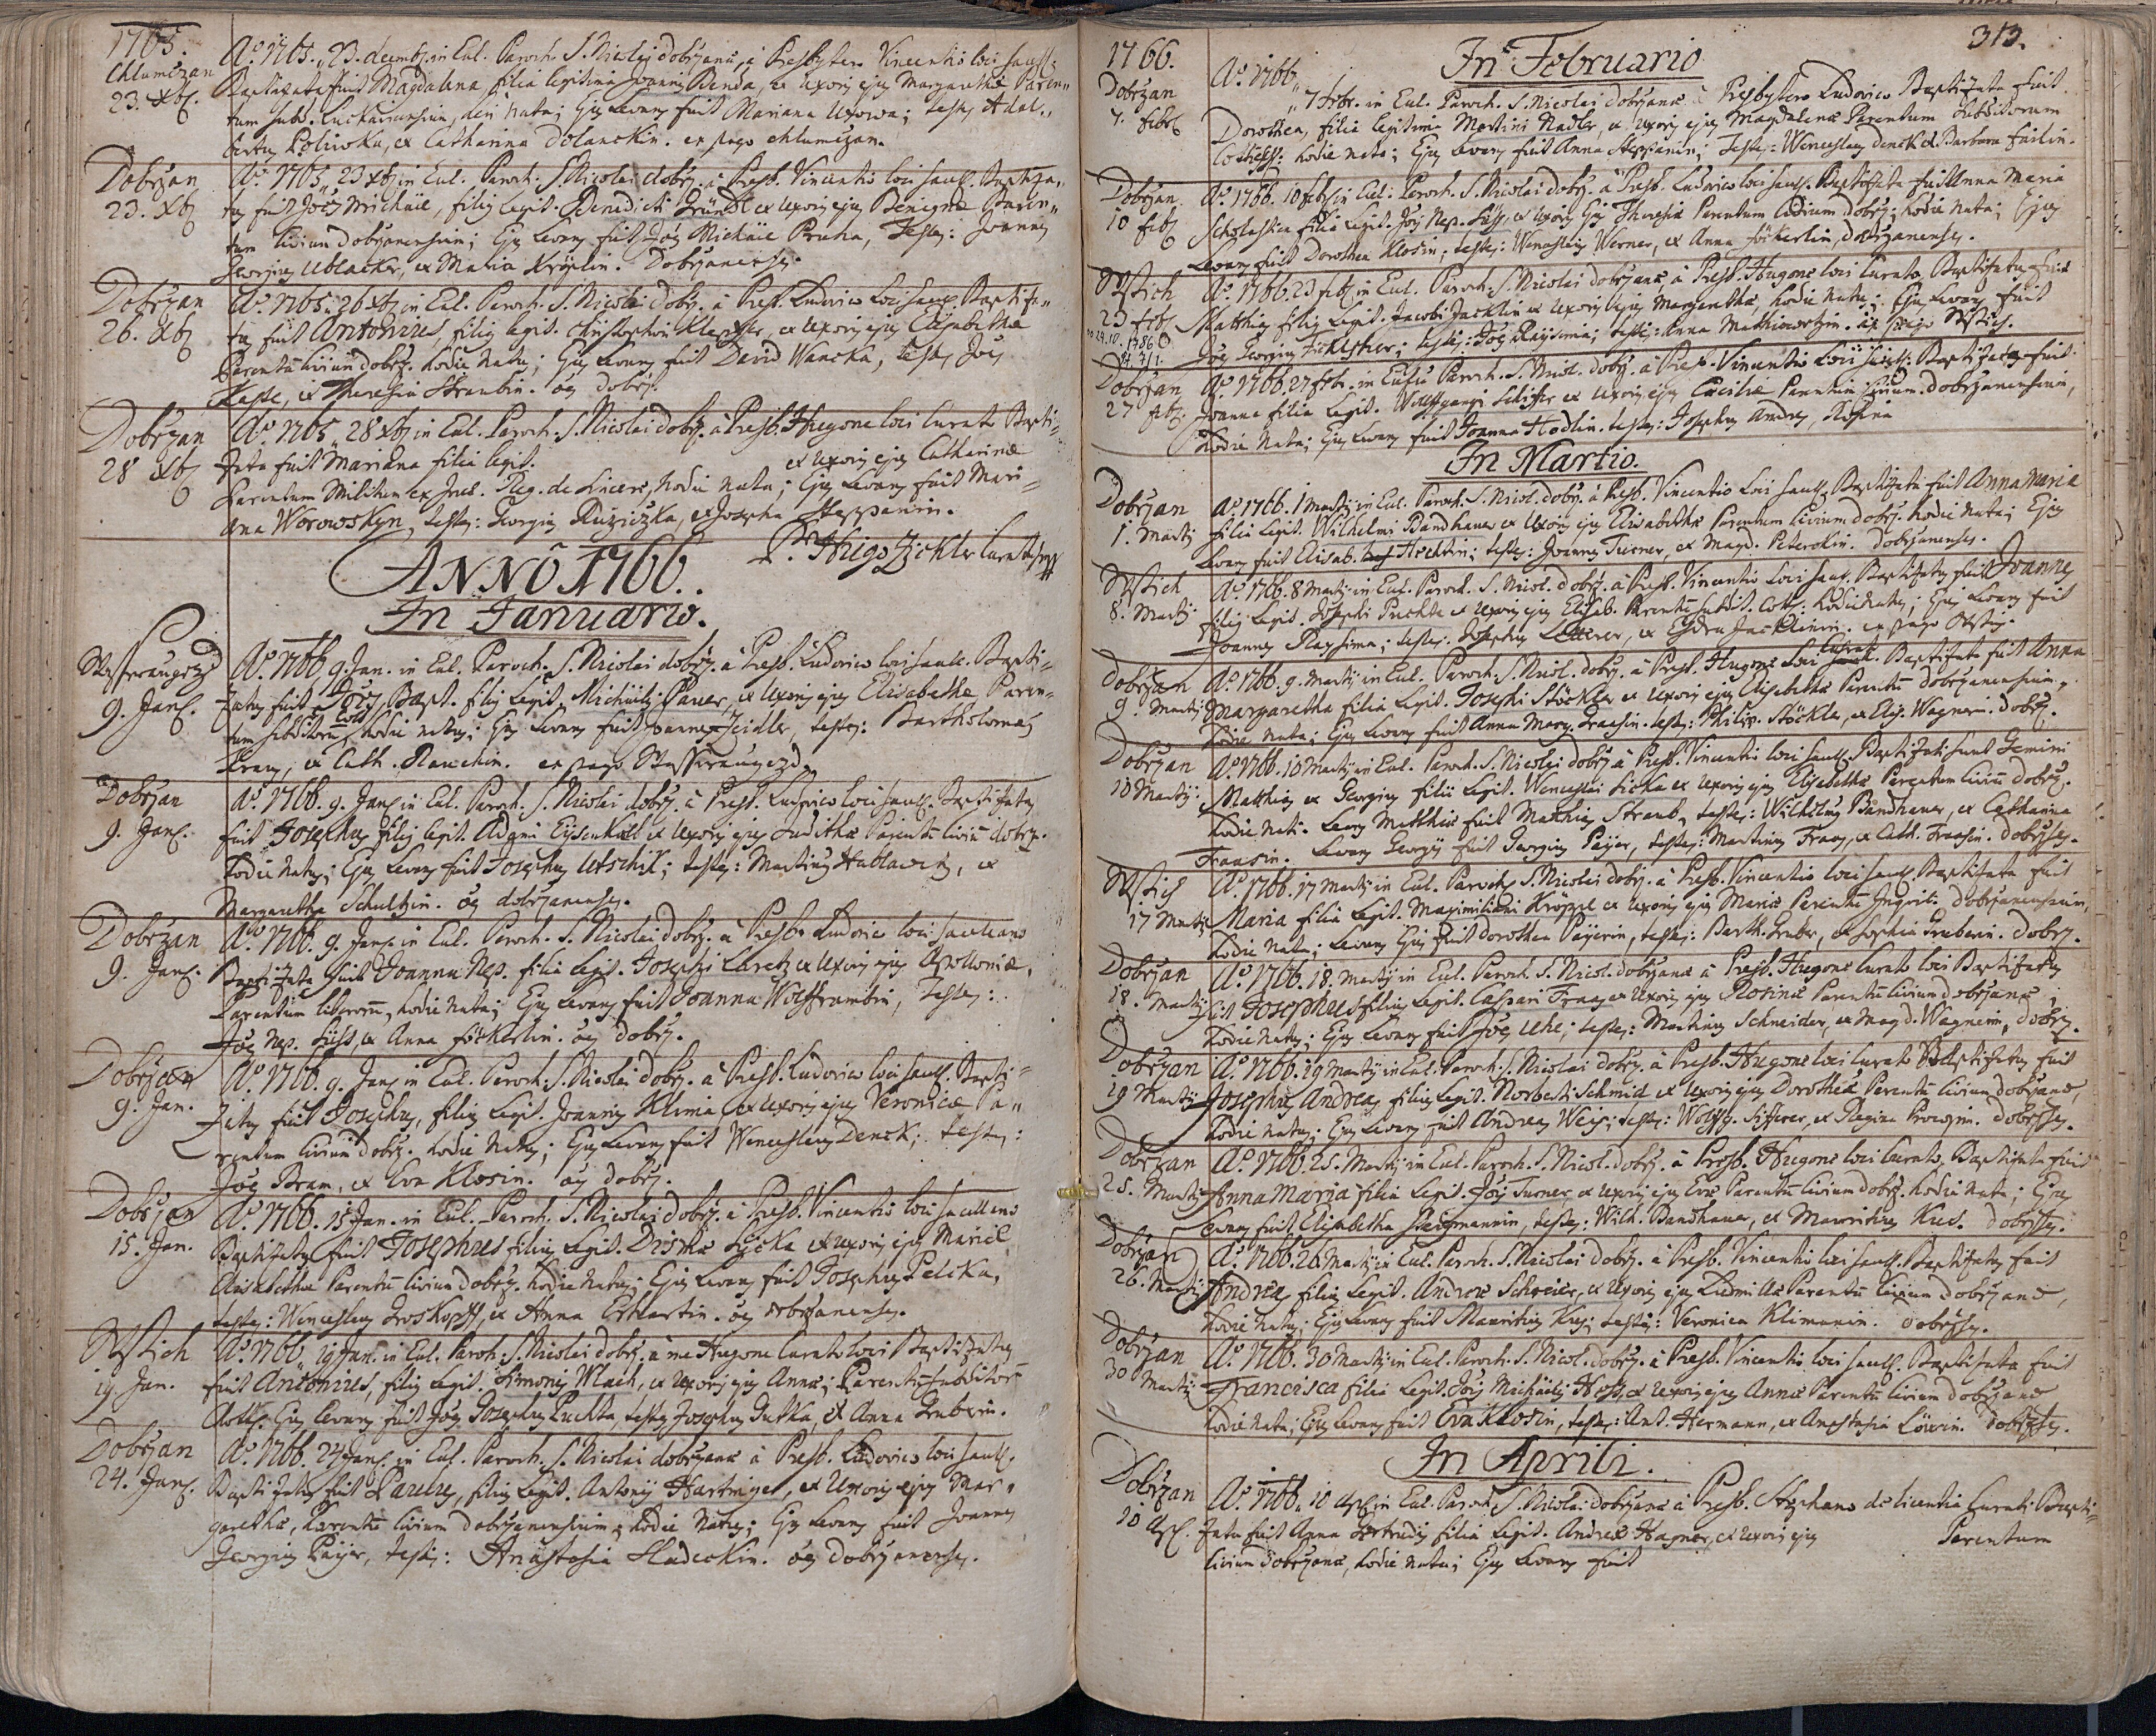 1765.
Chlumczan
23. Xb.
Aõ 1765. 23. decemb. in Eccl. Paroch. S. Nicolai dobrzanæ, à Presbytero Vincentio loci sacell:
Baptizata fuit Magdalena filia legitima Joannis Benda, et Uxoris ejus Margarethæ Paren„
tum subd. nata; Ejus Levans fuit Mariana testes Adal„
bertus Polivka, et Catharina Dolanckin. ex pago chlumczan.
Dobrzan
23. Xb
Aõ 1765. 23 Xb. in Eccl. Paroch. S. Nicolai dobrz. à Presb. Vincentio loci sacell. Baptiza„
tus fuit Joes Michäel, filius legit. Benedicti Gründl et Uxoris ejus Benignæ Paren„
tum Civium dobrzanensium; Ejus Levans fuit Joes Michäel Pruha, Testes: Joannes
Georgius Ublacker, et Maria Kröplin. Dobrzanenses.
Dobrzan
26. Xb
Aõ 1765. 26 Xb. in Eccl. Paroch. S. Nicolai dobrz. à Presb. Ludovico Loci sacell. Baptiza„
tus fuit Antonius, filius legit. Christophori et Uxoris ejus Elisabethæ
Parentũ Civium dobrz. hodie natus; Ejus Levans fuit David Wancka, Testes Joes
et Theresia Straubin. oes dobrz.
Dobrzan
28 Xb
Aõ 1765. 28 Xb. in Eccl. Paroch. S. Nicolai dobrz. à Presb. Hugone loci Curato Bapti=
zata fuit Mariana filia legit. et Uxoris ejus Catharinæ
Parentum Militum ex Reg. de hodie nata; Ejus Levans fuit Mari=
ana Worowskyn, testes: Georgius Ruziczka, et Josepha Steppanin.
P. Hugo Zickler Curatus mpp
ANNO 1766.
In Januario.
9. Jan.
Aõ 1766. 9. Jan. in Eccl. Paroch. S. Nicolai dobrz. à Presb. Ludovico loci sacell. Bapti=
zatus fuit Joes Bapt. filius legit. Michäelis Pauer, et Uxoris ejus Elisabethæ Paren=
tum subditorũ hodie natus; Ejus Levans fuit Joannes Zeidler, testes: Bartholomæus
et Cath. ex pago
Dobrzan
9. Jan.
Aõ 1766. 9. Jan. in Eccl. Paroch. S. Nicolai dobrz. à Presb. Ludovico loci sacell. Baptizatus
fuit Josephus filius legit. Adami et Uxoris ejus Judithæ Parentũ Civiũ dobrz.
hodie natus; Ejus Levans fuit Josephus Utschik; testes: Martinus et
Margaretha Schultzin. oes dobrzanenses.
Dobrzan
9. Jan.
Aõ 1766. 9. Jan. in Eccl. Paroch. S. Nicolai dobrz. à Presb. Ludovico loci sacellano
Baptizata fuit Joanna Nep. filia legit. Josephi et Uxoris ejus Apolloniæ,
Parentum liberorũ, hodie nata; Ejus Levans fuit Joanna Wolfframbin, Testes:
Joes Nep. Süss, et Anna Föckerlin. oes dobrz.
Dobrzan
9. Jan.
Aõ 1766. 9. Jan. in Eccl. Paroch. S. Nicolai dobrz. à Presb. Ludovico loci sacell. Bapti=
zatus fuit Josephus, filius legit. Joannis Klima, et Uxoris ejus Veronicæ Pa„
rentum Civium dobrz. hodie natus; Ejus Levans fuit Wenceslaus Denck; testes:
Joes Bram, et Eva Klosin. oes dobrz.
Dobrzan
15. Jan.
Aõ 1766. 15 Jan. in Eccl. Paroch. S. Nicolai dobrz. à Presb. Vincentio loci sacellano
Baptizatus fuit Josephus filius legit. Dismæ Lycka et Uxoris ejus Mariæ
Elisabethæ Parentũ Civium dobrz. hodie natus; Ejus Levans fuit Josephus Pelika,
testes: Wenceslaus Groskopff, et Anna Erhartin. oes dobrzanenses.
Wstich
19. Jan.
Aõ 1766. 19 Jan. in Eccl. Paroch. S. Nicolai dobrz. à me Hugone Curato loci Baptizatus
fuit Antonius, filius legit. Simonis Wlach, et Uxoris ejus Annæ; Parentũ subditor.
Ejus Levans fuit Joes Josephus Puchta, testes Josephus Dutka, et Anna Gruberin.
Dobrzan
24. Jan.
Aõ 1766. 24 Jan. in Eccl. Paroch. S. Nicolai dobrzanæ à Presb. Ludovico loci sacell.
Baptizatus fuit Paulus, filius legit. Antonij Hartinger, et Uxoris ejus Mar„
garethæ, Parentũ Civium dobrzanensium, hodie natus; Ejus Levans fuit Joannes
Georgius Paijer, testes: Anastasia Hladeckin. oes dobrzanenses.
313.
1766.
In Februario
Dobrzan
7. febr.
Aõ 1766. 7 febr. in Eccl. Paroch. S. Nicolai dobrzanæ à Presbytero Ludovico Baptizata fuit
Dorothea, filia legitima Martini Nadler, et Uxoris ejus Magdalenæ Parentum subditorum
hodie nata; Ejus Levans fuit Anna Steppanin; Testes: Wenceslaus Denck et Barbara
Dobrzan
10 feb
Aõ 1766. 10 feb. in Eccl. Paroch. S. Nicolai dobrz. à Presb. Ludovico loci sacell. Baptizata fuit Anna Maria
Scholastica filia legit. Jois Nep. Süss, et Uxoris Ejus Theresiæ Parentum Civium dobrz. hodie nata; Ejus
Levans fuit Dorothea Klosin; testes: Wenceslaus Werner, et Anna Föckerlin, dobrzanenses.
Wstich
23 feb.
Aõ 1766. 23 feb. in Eccl. Paroch. S. Nicolai dobrzanæ à Presb. Hugone loci Curato Baptizatus fuit
Matthias filius legit. Jacobi Jacklin et Uxoris ejus Margarethæ, hodie natus; Ejus Levans fuit
Joes Georgius testes: Joes Rayssima; testes: Anna ex pago Wstich.
Dobrzan
27 feb.
Aõ 1766. 27 feb. in Eccl. Paroch. S. Nicol. dobrz. à Presb. Vincentio Loci sacell. Baptizata fuit
Joanna filia legit. Wolffgangi Schiffer et Uxoris ejus Cæciliæ Parentum Civium dobrzanensium,
hodie nata; Ejus Levans fuit Joanna Hodlin. testes: Josephus Andres, Rosina
In Martio.
Dobrzan
1. Martij
Aõ 1766. 1 Martij in Eccl. Paroch. S. Nicol. dobrz. à Presb. Vincentio Loci sacell. Baptizata fuit Anna Maria
filia legit. Wilhelmi Bandhauer et Uxoris ejus Elisabethæ Parentum Civium dobrz. hodie nata; Ejus
Levans fuit Elisab. Hechtin; testes: Joannes Turner, et Magd. Peterckin. dobrzanenses.
Wstich
8. Martij
Aõ 1766. 8 Martij in Eccl. Paroch. S. Nicol. dobrz. à Presb. Vincentio Loci sacell. Baptizatus fuit Joannes
filius legit. Josephi Puchta et Uxoris ejus Elisab. Parentũ subdit. hodie natus; Ejus Levans fuit
Joannes Rayssima; testes: Josephus Letterer, et ex pago Wstich.
Dobrzan
9. Martij
Aõ 1766. 9. Martij in Eccl. Paroch. S. Nicol. dobrz. à Presb. Hugone Loci Curato. Baptizata fuit Anna
Margaretha filia legit. Josephi Stöckler et Uxoris ejus Elisabethæ Parentũ dobrzanensium,
hodie nata; Ejus Levans fuit Anna Marg. testes: Philip. Stöckla, et Elis. Wagnerin. dobrz.
Dobrzan
10 Martij
Aõ 1766. 10 Martij in Eccl. Paroch. S. Nicolai dobrz. à Presb. Vincentio loci sacell. Baptizati sunt Gemini
Matthias et Georgius filii legit. Wenceslai Licka et Uxoris ejus Elisabethæ Parentum Civiũ dobrz.
hodie nati. Levans Matthiæ fuit Mathias Straub, testes: Wilhelmus Bandhauer, et Catharina
Levans Georgij fuit Georgius Paijer, testes: Martinus et Cath. dobrzses.
Wstich
17 Martij
Aõ 1766. 17 Martij in Eccl. Paroch. S. Nicolai dobrz. à Presb. Vincentio loci sacell. Baptizata fuit
Maria filia legit. Maximiliani Kröppl et Uxoris ejus Mariæ Parentũ dobrzanensium,
hodie nata; Levans Ejus fuit Dorothea Paijerin, testes: Barth. Gruber, et Sophia Gruberin. dobrz.
Dobrzan
18. Martij
Aõ 1766. 18. Martij in Eccl. Paroch. S. Nicol. dobrzanæ à Presb. Hugone Curato loci Baptizatus
fuit Josephus filius legit. Caspari et Uxoris ejus Rosinæ Parentũ Civium dobrzanæ;
hodie natus; Ejus Levans fuit Joes Uhe; testes: Martinus Schneider, et Magd. Wagnerin, dobrz.
Dobrzan
19 Martij
Aõ 1766. 19 Martij in Eccl. Paroch. S. Nicolai dobrz. à Presb. Hugone loci Curato Baptizatus fuit
Josephus Andreas filius legit. Norberti Schmid et Uxoris ejus Dorotheæ, Parentũ Civium dobrzanæ,
hodie natus; Ejus Levans fuit Andreas Weis; testes: Wolfg. Sifferer, et Regina dobrzses.
Dobrzan
25. Martij
Aõ 1766. 25. Martij in Eccl. Paroch. S. Nicol. dobrz. à Presb. Hugone loci Curato, Baptizata fuit
Anna Maria filia legit. Jois Turner et Uxoris ejus Evæ Parentũ Civium dobrz. hodie nata; Ejus
Levans fuit Elisabetha testes: Wilh. Bandhauer, et Mauritius Kus. dobrzses.
Dobrzan
26. Martij
Aõ 1766. 26 Martij in Eccl. Paroch. S. Nicolai dobrz. à Presb. Vincentio loci sacell. Baptizatus fuit
Andreas filius legit. Andreæ Schreier, et Uxoris ejus Ludmillæ Parentũ Civium dobrzanæ,
hodie natus; Ejus Levans fuit Mauritius Kus; testes: Veronica Klimanin. dobrzses.
Dobrzan
30 Martij
Aõ 1766. 30 Martij in Eccl. Paroch. S. Nicol. dobrz. à Presb. Vincentio loci sacell. Baptizata fuit
Francisca filia legit. Jois Michäelis Hess, et Uxoris ejus Annæ Parentũ Civium dobrzanæ
hodie nata; Ejus Levans fuit Eva Klosin, testes: Ant. Hermann, et Anastasia Löwin. dobrzses.
In Aprili.
Dobrzan
10 Apr.
Aõ 1766. 10 Apr. in Eccl. Paroch. S. Nicolai dobrzanæ à Presb. Stephano de licentia Curati Bapti=
zata fuit Anna Gertrudis filia legit. Andreæ Hagner, et Uxoris ejus Parentum
Civium dobrzanæ, hodie nata; Ejus Levans fuit